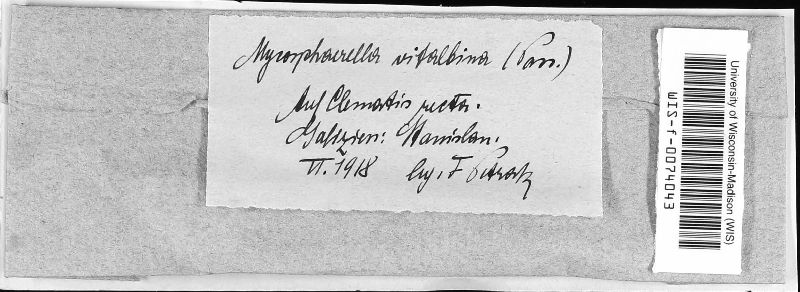 Mycosphaerella vitalbina (Pass.)
Auf Clematis recta.
Galizien: Stanislau.
VI. 1918 leg. F Petrak
University of Wisconsin-Madison (WIS)
WIS-f-0074043